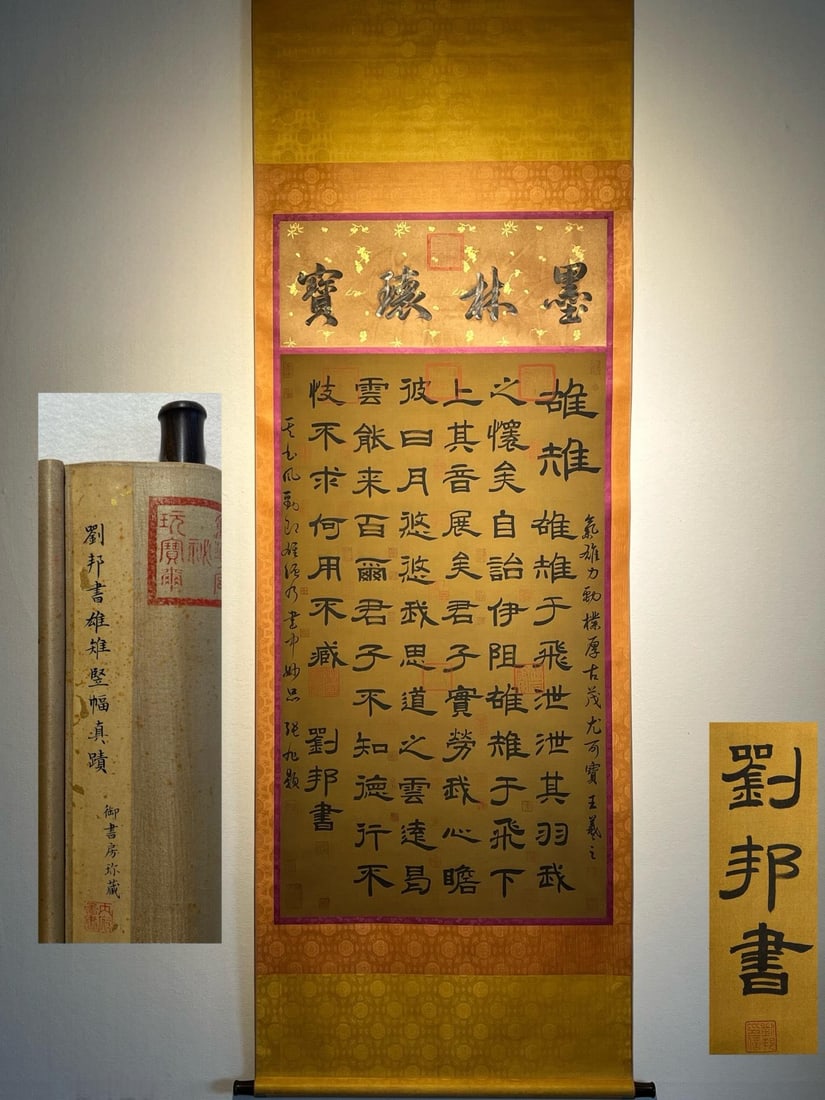 墨林瓌寶
氣雄力勁樸厚古茂尤可寶王羲之
雄雉 雄雉于飛泄泄其羽我
之懷矣自詒伊阻雄雉于飛下
上其音展矣君子實勞我心瞻
彼日月悠悠我思道之雲遠曷
雲能来百爾君子不知德行不
忮不求何用不臧 劉邦書
雄强乃書中妙品 張旭題
劉邦書雄雉豎幅真蹟
御書房珎藏
劉邦書